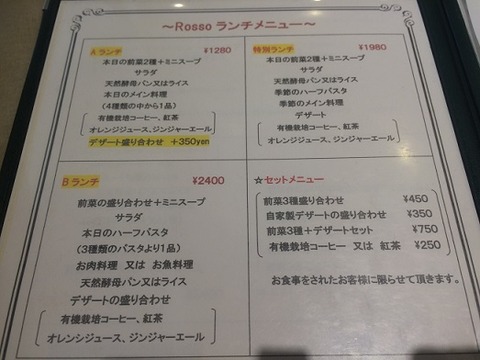 ～Rosso ランチメニュー～
Aランチ ¥1280
本日の前菜2種＋ミニスープ
サラダ
天然酵母パン又はライス
本日のメイン料理
(4種類の中から1品)
有機栽培コーヒー、紅茶
オレンジジュース、ジンジャーエール
デザート盛り合わせ ＋350yen
特別ランチ ¥1980
本日の前菜2種＋ミニスープ
サラダ
天然酵母パン又はライス
季節のハーフパスタ
季節のメイン料理
デザート
有機栽培コーヒー、紅茶
オレンジジュース、ジンジャーエール
Bランチ ¥2400
前菜の盛り合わせ＋ミニスープ
サラダ
本日のハーフパスタ
(3種類のパスタより1品)
お肉料理 又は お魚料理
天然酵母パン又はライス
デザートの盛り合わせ
有機栽培コーヒー、紅茶
オレンジジュース、ジンジャーエール
☆セットメニュー
前菜3種盛り合わせ ¥450
自家製デザートの盛り合せ ¥350
前菜3種＋デザートセット ¥750
有機栽培コーヒー 又は 紅茶 ¥250
お食事をされたお客様に限らせて頂きます。